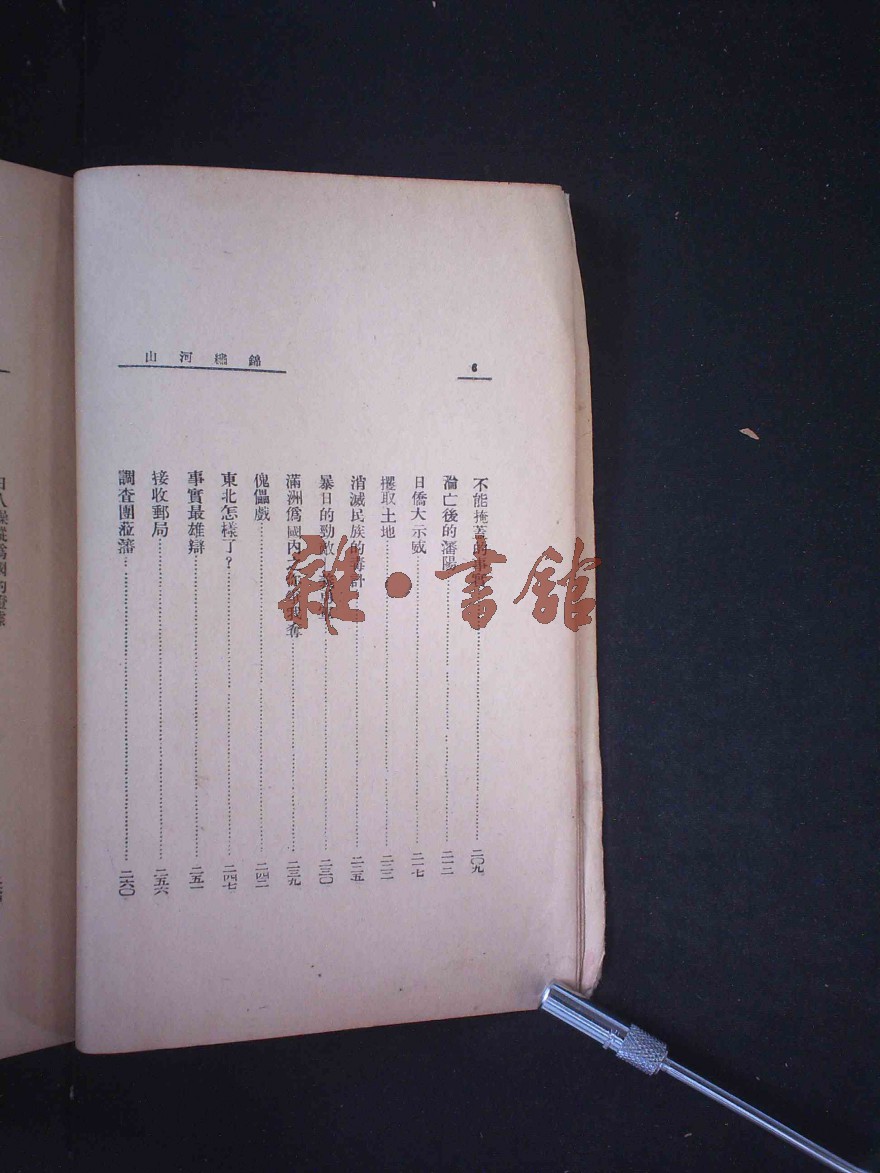 錦繡河山
6
不能掩蓋的事實……二〇九
淪亡後的瀋陽……二一三
日僑大示威……二一七
攫取土地……二二二
消滅民族的毒計……二二五
暴日的勁敵……二三〇
滿洲僞國內之……奪……二三九
傀儡戲……二四二
東北怎樣了?……二四七
事實最雄辯……二五一
接收郵局……二五六
調查團蒞瀋……二六〇
雜·書館